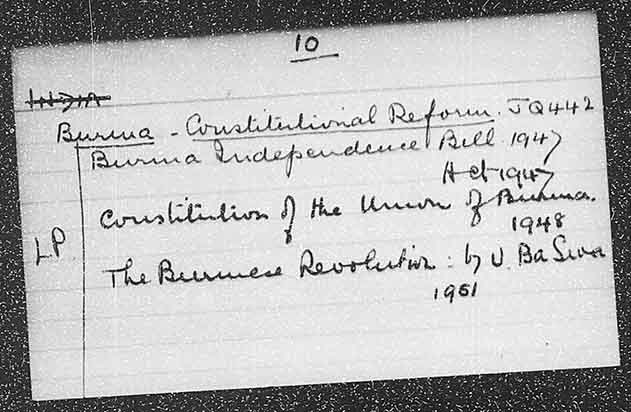 10
INDIA
Burma - Constitutional Reform. JQ442
Burma Independence Bill 1947
Act 1947
Constitution of the Union of Burma.
1948
LP
The Burmese Revolution: by U. Ba Swe
1951